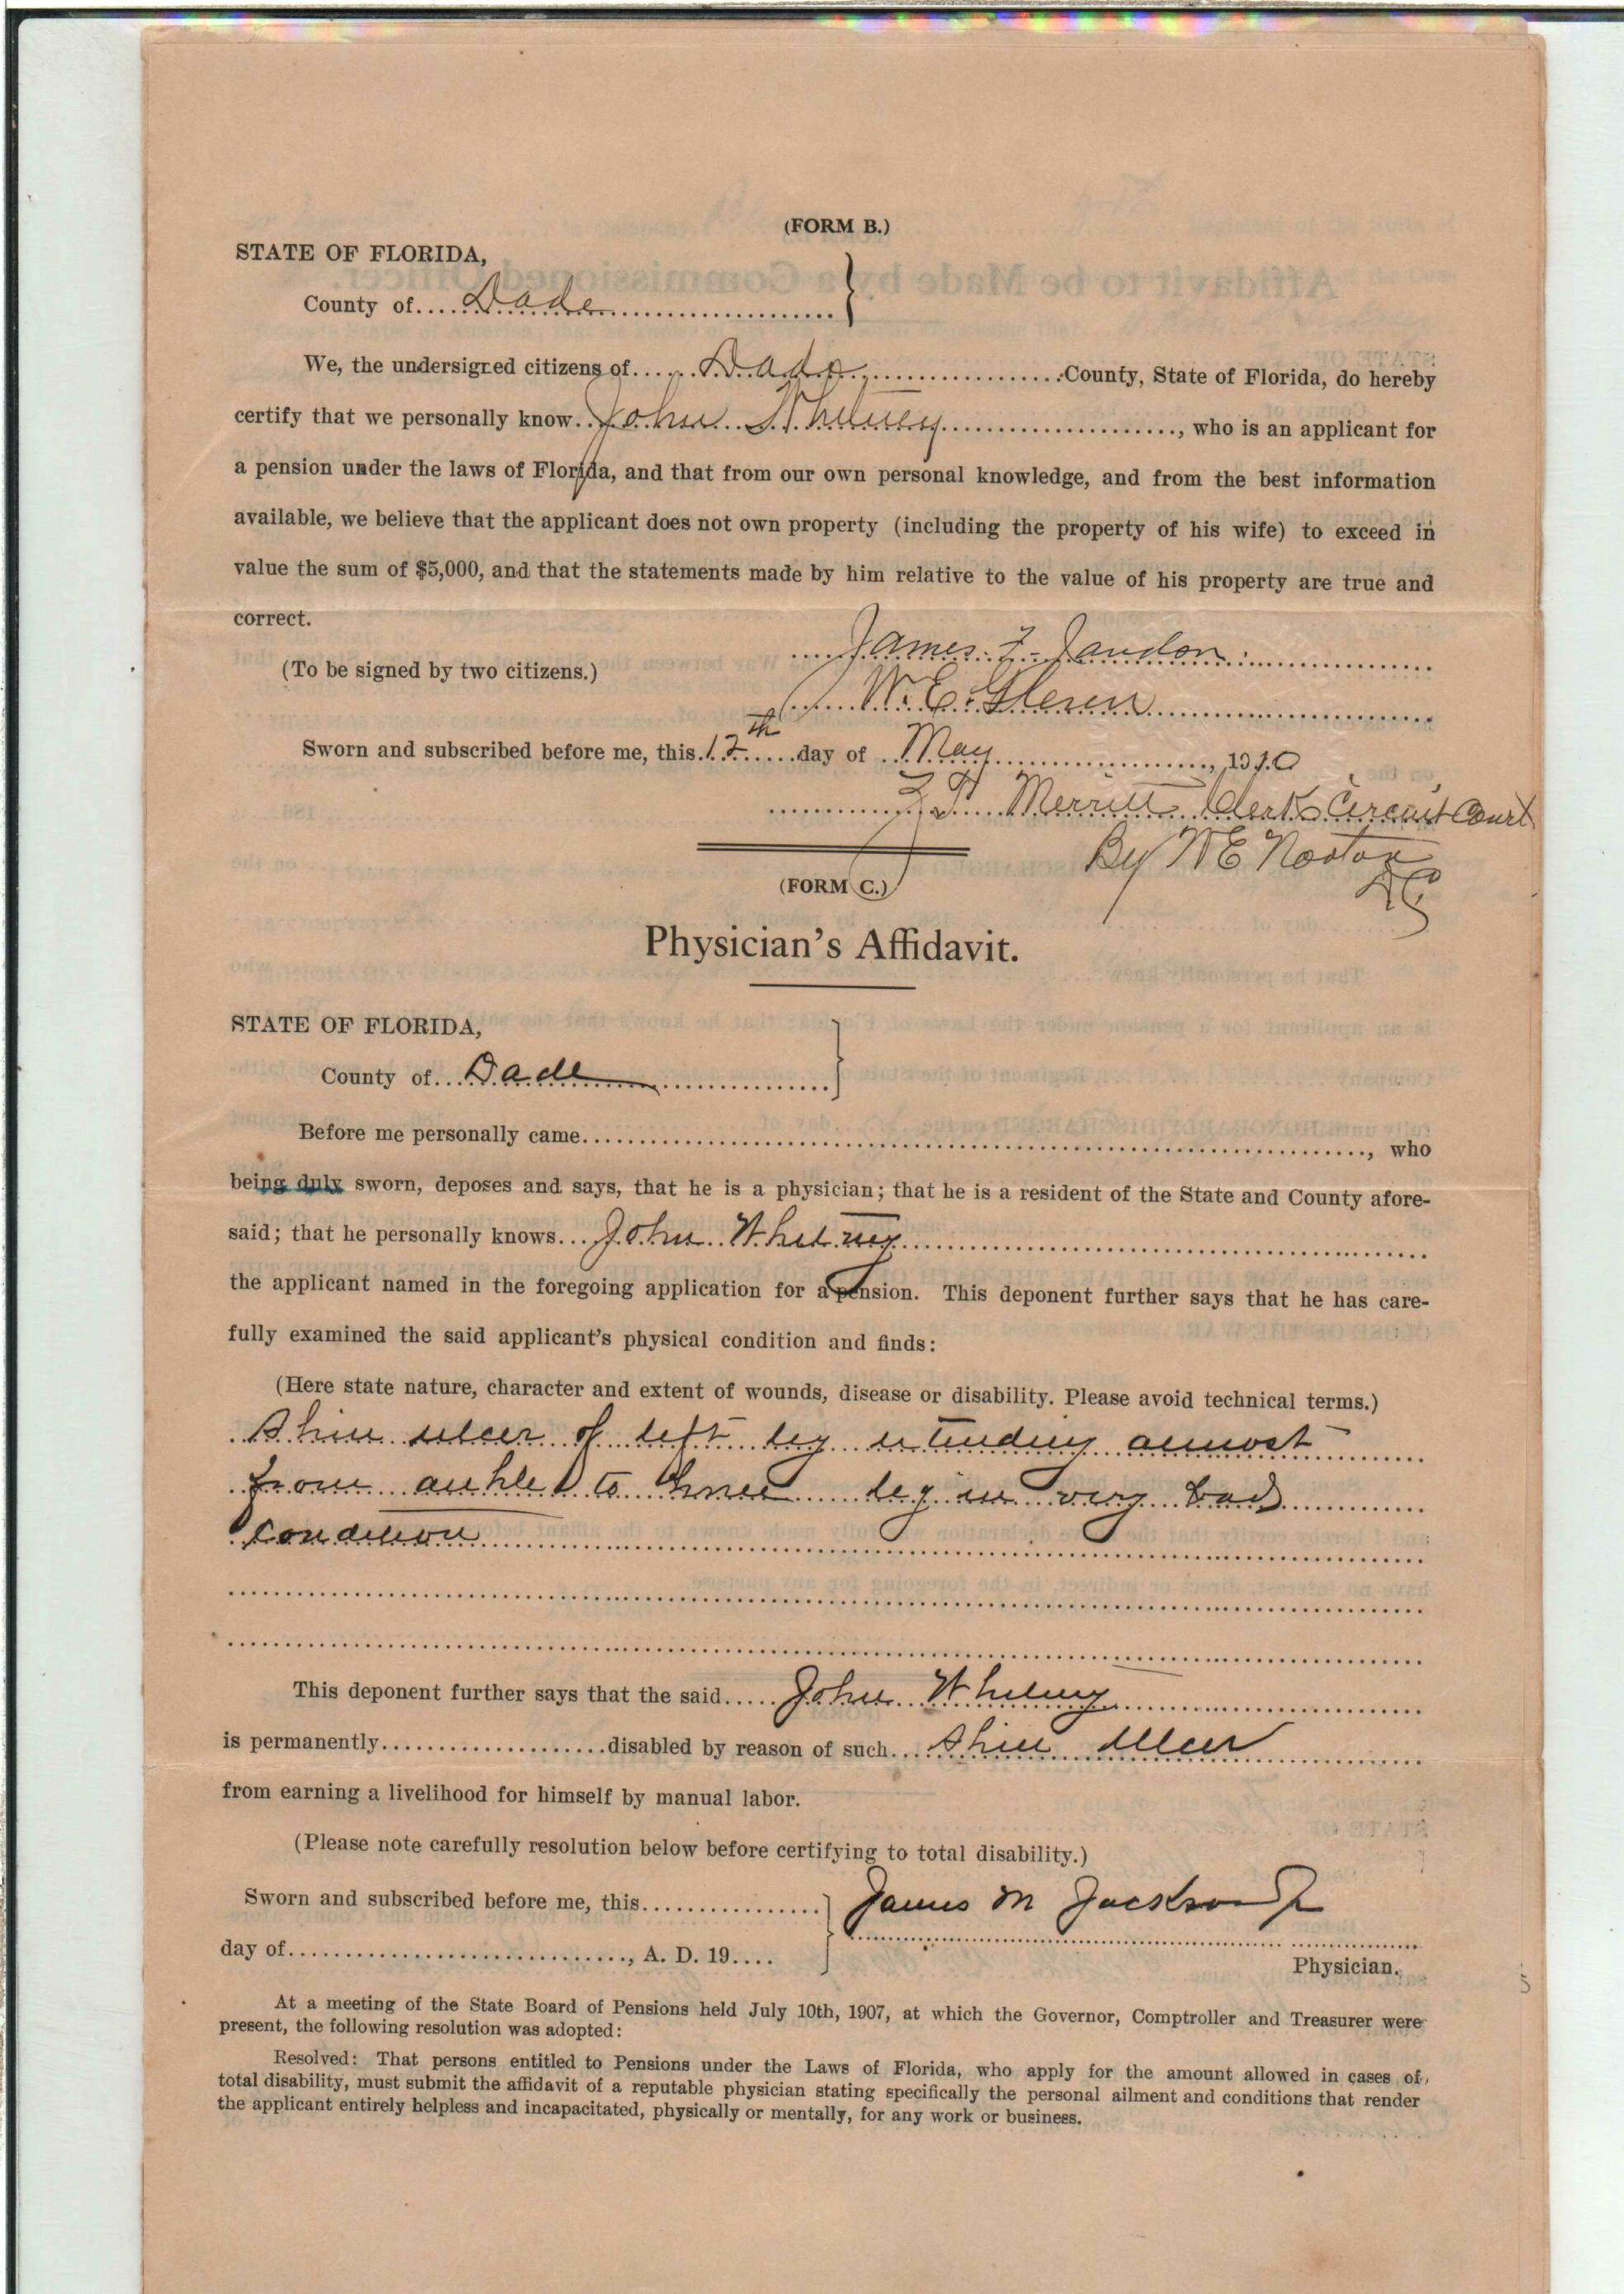 (FORM B.)
STATE OF FLORIDA,
County of Dade
We, the undersigned citizens of Dade County, State of Florida, do hereby
certify that we personally know John Whitney, who is an applicant for
a pension under the laws of Florida, and that from our own personal knowledge, and from the best information
available, we believe that the applicant does not own property (including the property of his wife) to exceed in
value the sum of $5,000, and that the statements made by him relative to the value of his property are true and
correct.
James F. Jaudon
(To be signed by two citizens.)
W. E.
Sworn and subscribed before me, this 12th day of May, 1910
Z T Merritt Clerk Circuit Court
By W E Norton
DC
(FORM C.)
Physician's Affidavit.
STATE OF FLORIDA,
County of Dade
Before me personally came, who
being duly sworn, deposes and says, that he is a physician; that he is a resident of the State and County afore-
said; that he personally knows John Whitney
the applicant named in the foregoing application for a pension. This deponent further says that he has care-
fully examined the said applicant's physical condition and finds:
(Here state nature, character and extent of wounds, disease or disability. Please avoid technical terms.)
Shin ulcer of left leg extending almost
from ankle to knee leg in very bad
condition
This deponent further says that the said John Whitney
is permanently disabled by reason of such Shin Ulcer
from earning a livelihood for himself by manual labor.
(Please note carefully resolution below before certifying to total disability.)
Sworn and subscribed before me, this
James M Jackson Jr
day of, A. D. 19
Physician.
At a meeting of the State Board of Pensions held July 10th, 1907, at which the Governor, Comptroller and Treasurer were
present, the following resolution was adopted:
Resolved: That persons entitled to Pensions under the Laws of Florida, who apply for the amount allowed in cases of
total disability, must submit the affidavit of a reputable physician stating specifically the personal ailment and conditions that render
the applicant entirely helpless and incapacitated, physically or mentally, for any work or business.